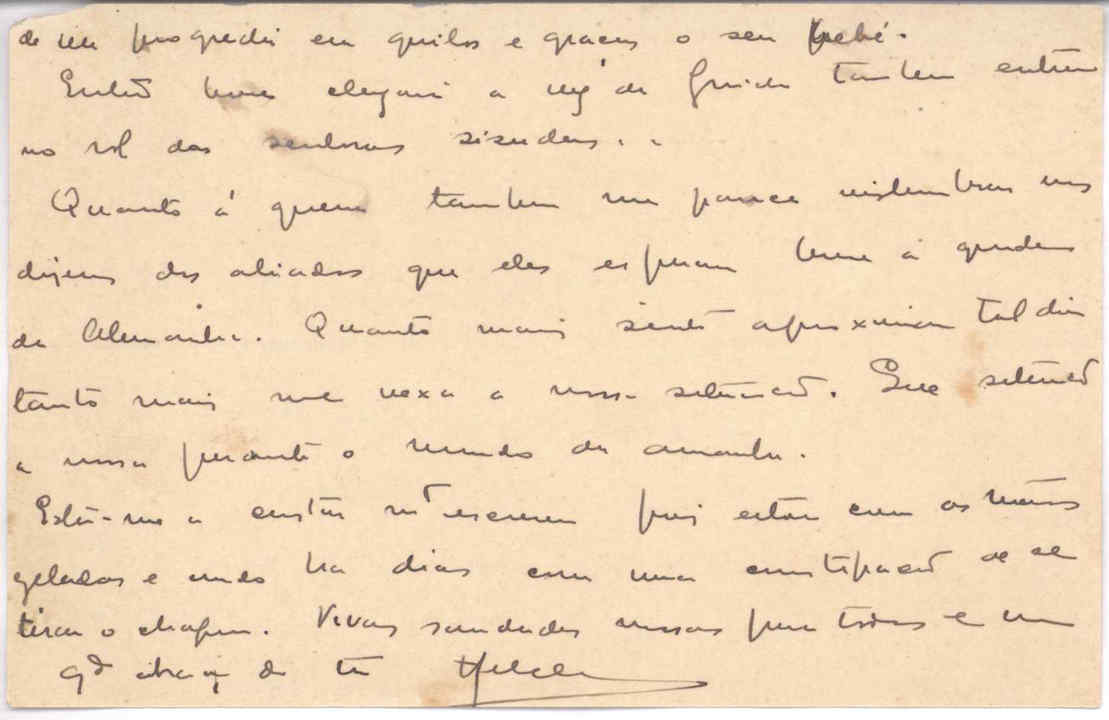 de ver progredir em quilos e graças o seu bebé.
Então breve chegará a vez da Guida tambem entrar
no rol das senhoras sisudas..
Quanto á guerra tambem me parece vislumbrar nos
dizeres dos aliados que eles esperam breve a queda
da Alemanha. Quanto mais sinto aproximar tal dia
tanto mais me vexa a nossa situação. Que situação
a nossa perante o mundo de amanhã.
Está-me a custar mt escrever pois estou com as mãos
geladas e ando ha dias com uma constipação de se
tirar o chapeu. Vivas saudades nossas para todos e um
gd abraço do teu